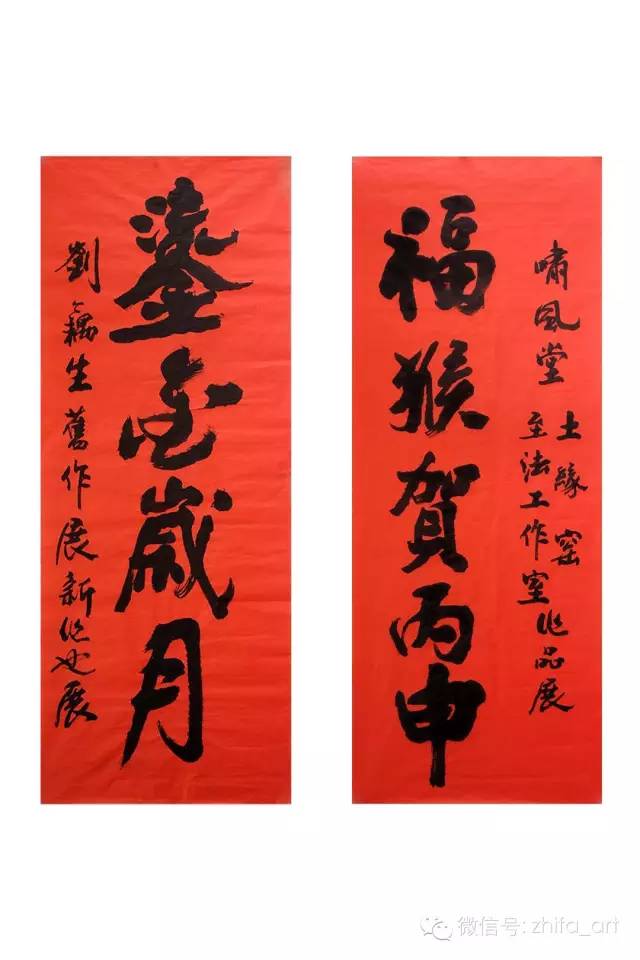 嘯風堂
土緣窑
至法工作室作品展
福猴賀丙申
鎏金歲月
劉藕生舊作展新作也展
微信号: zhifa_art